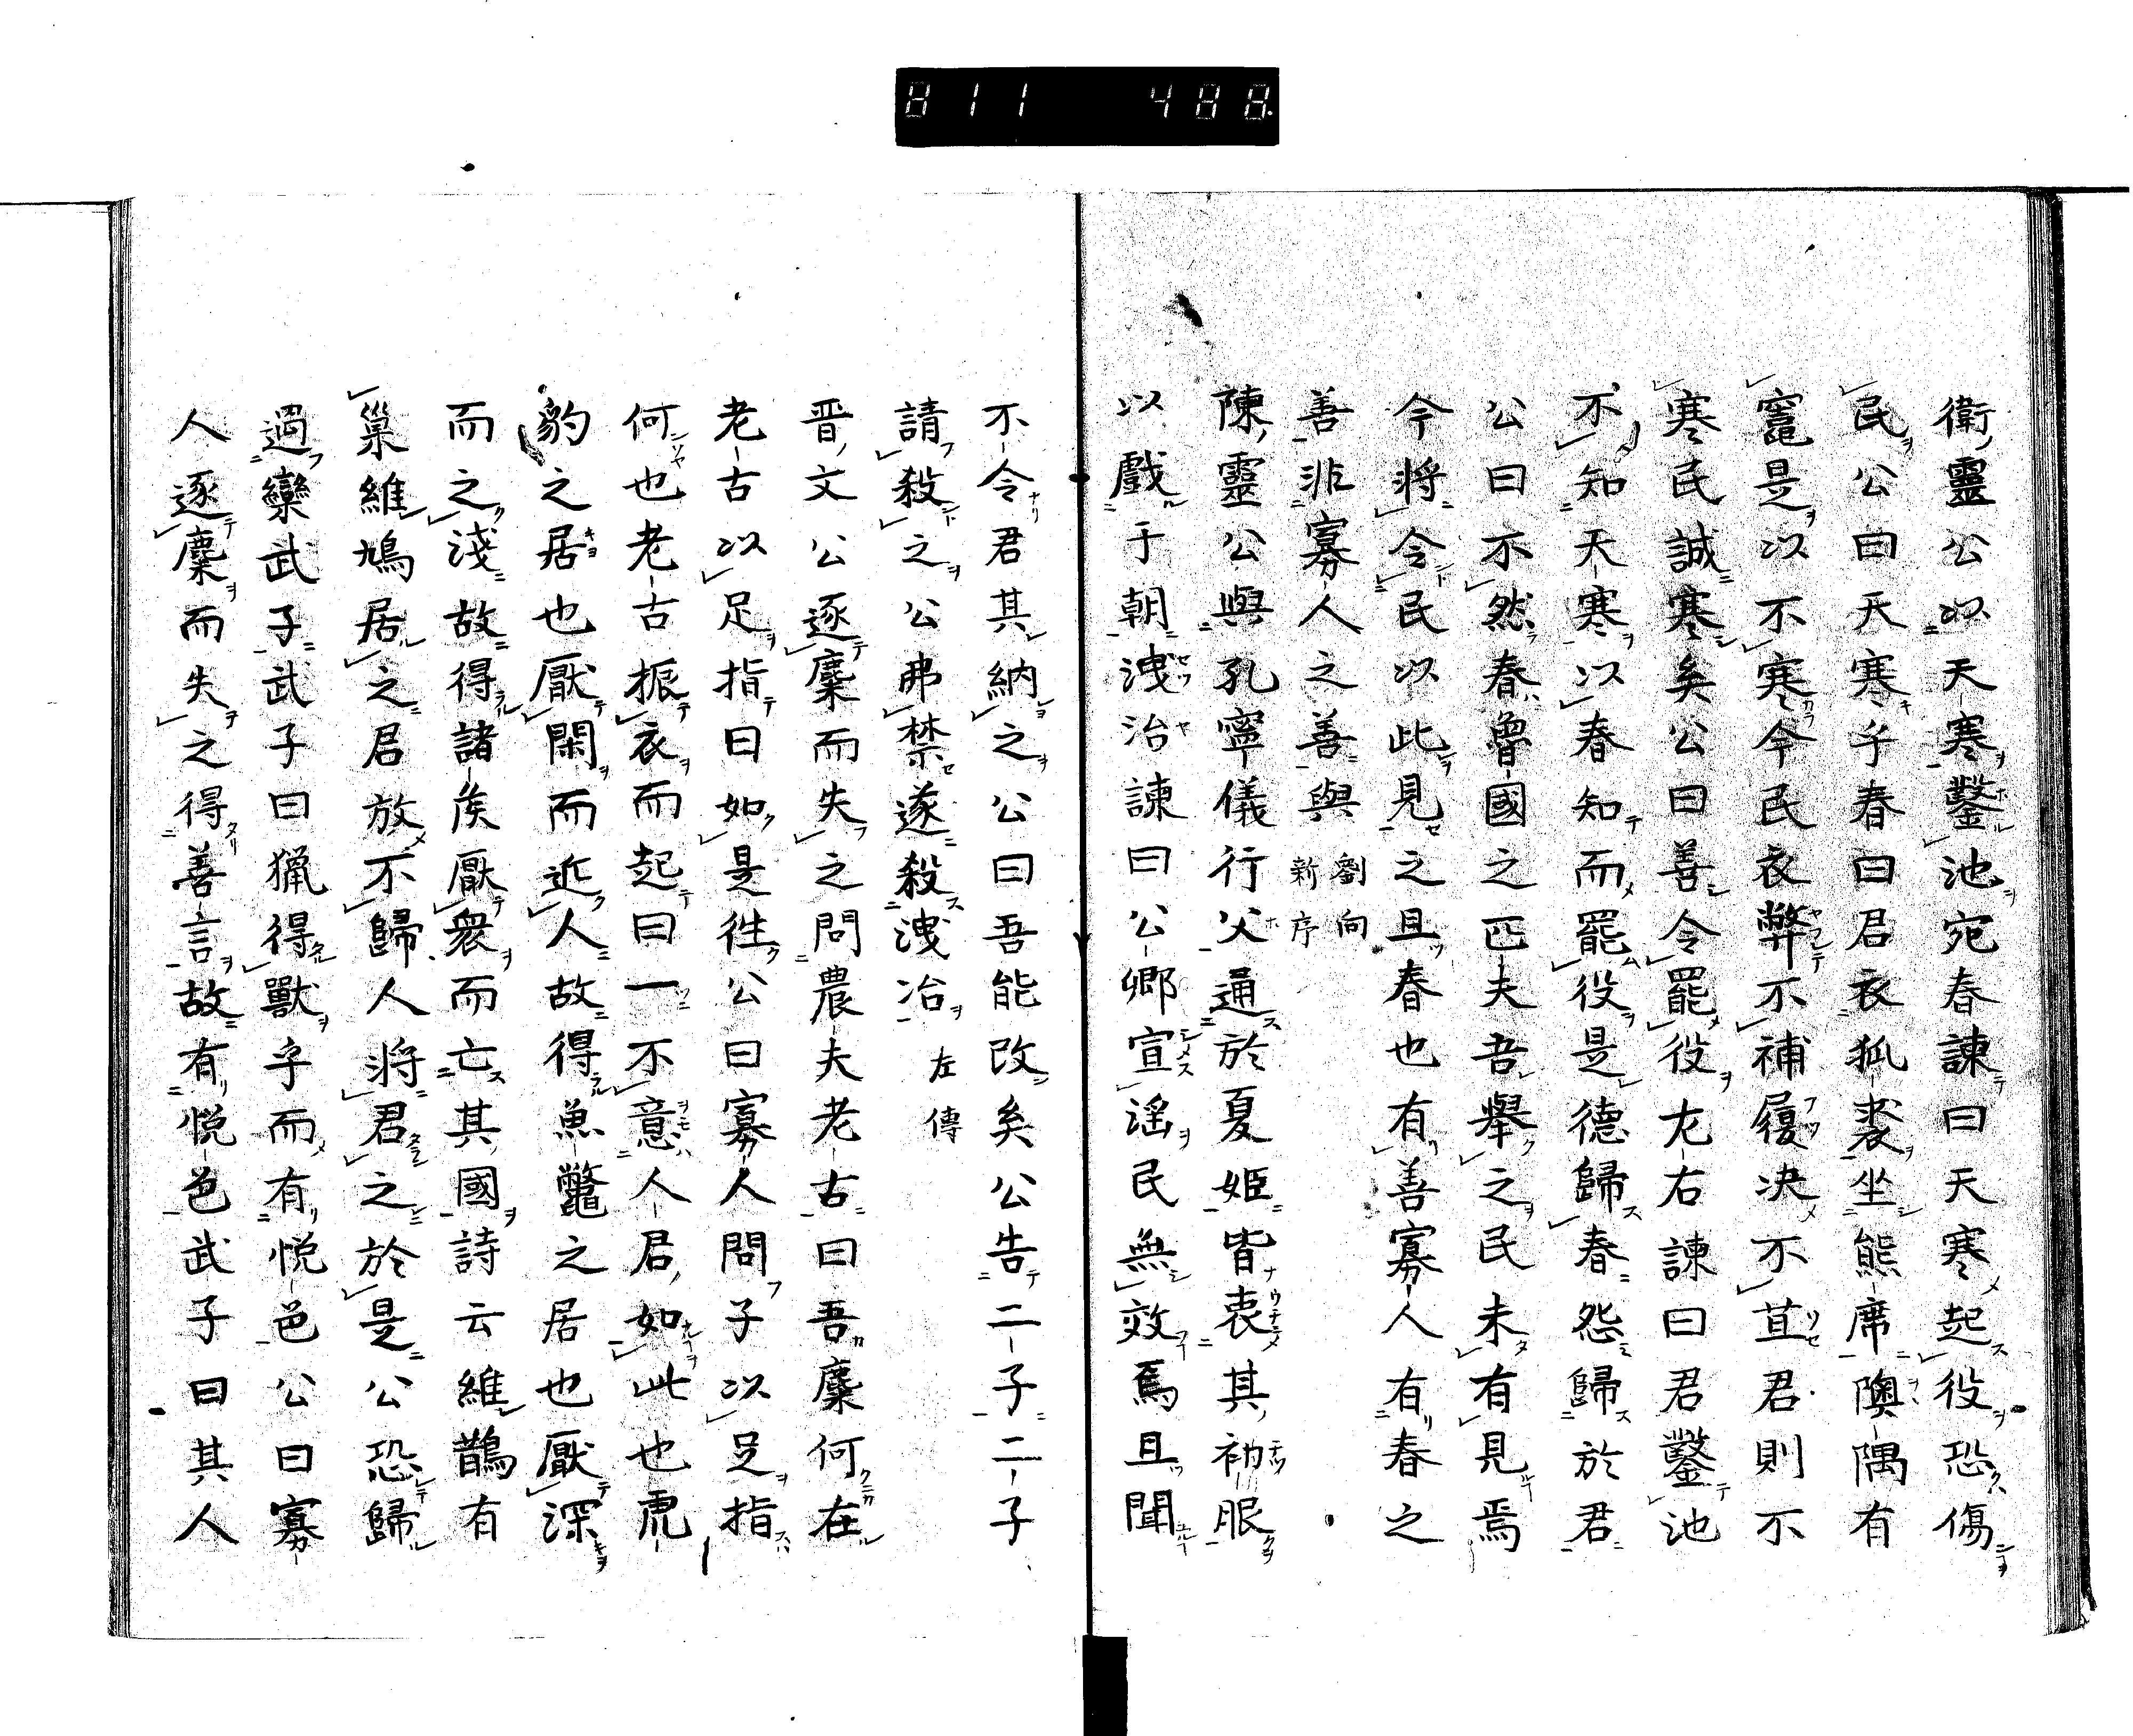 811 488
衛靈公以天寒鑿池宛春諫曰天寒起役恐傷
民公曰天寒乎春曰君衣狐裘坐熊席隩隅有
竈是以不寒今民衣弊不補履决不苴君則不
寒民誠寒矣公曰善令罷役左右諫曰君鑿池
不知天寒以春知而罷役是德歸春怨歸於君
公曰不然春魯國之匹夫吾舉之民未有見焉
今將令民以此見之且春也有善寡人有春之
善非寡人之善與 劉向新序
陳靈公與孔寧儀行父通於夏姬皆衷其衵服
以戲于朝洩冶諫曰公卿宣淫民無效焉且聞
不令君其納之公曰吾能改矣公告二子二子
請殺之公弗禁遂殺洩冶 左傳
晋文公逐麋而失之問農夫老古曰吾麋何在
老古以足指曰如是往公曰寡人問子以足指
何也老古振衣而起曰一不意人君如此也虎
豹之居也厭閑而近人故得魚鼈之居也厭深
而之淺故得諸矦厭衆而亡其國詩云維鵲有
巢維鳩居之君放不歸人將君之於是公恐歸
遇欒武子武子曰獵得獸乎而有悦色公曰寡
人逐麋而失之得善言故有悦色武子曰其人